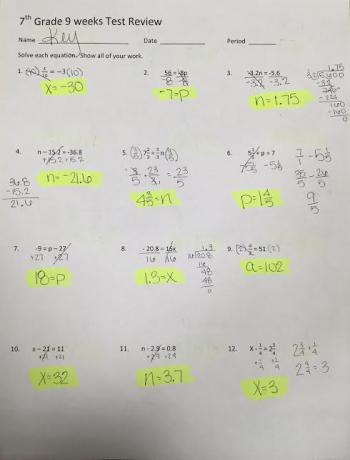 7th Grade 9 weeks Test Review
Name Key Date Period
Solve each equation. Show all of your work.
1. (10) = -3(10)
x = -30
2. 56 = -8p
-8 -8
-7=p
3. -3.2n = -5.6
-3.2 -3.2
n = 1.75
4. n – 15.2 = -36.8
+15.2 +15.2
n = -21.6
36.8
-15.2
21.6
5.
23
5
4 3/5 = n
6. 5 1/5 + p = 7
p = 1 4/5
7 - 5 1/5
35/5 - 26/5
9/5
7. -9 = p – 27
+27 +27
18 = p
8. - 20.8 = 16x
16 16
1.3 = X
9. (2) = 51 (2)
a = 102
10. x – 21 = 11
+21 +21
X = 32
11. n - 2.9 = 0.8
+2.9 +2.9
n = 3.7
12. X - 1/4 = 2 3/4
+1/4 +1/4
X = 3
2 3/4 + 1/4
2 4/4 = 3